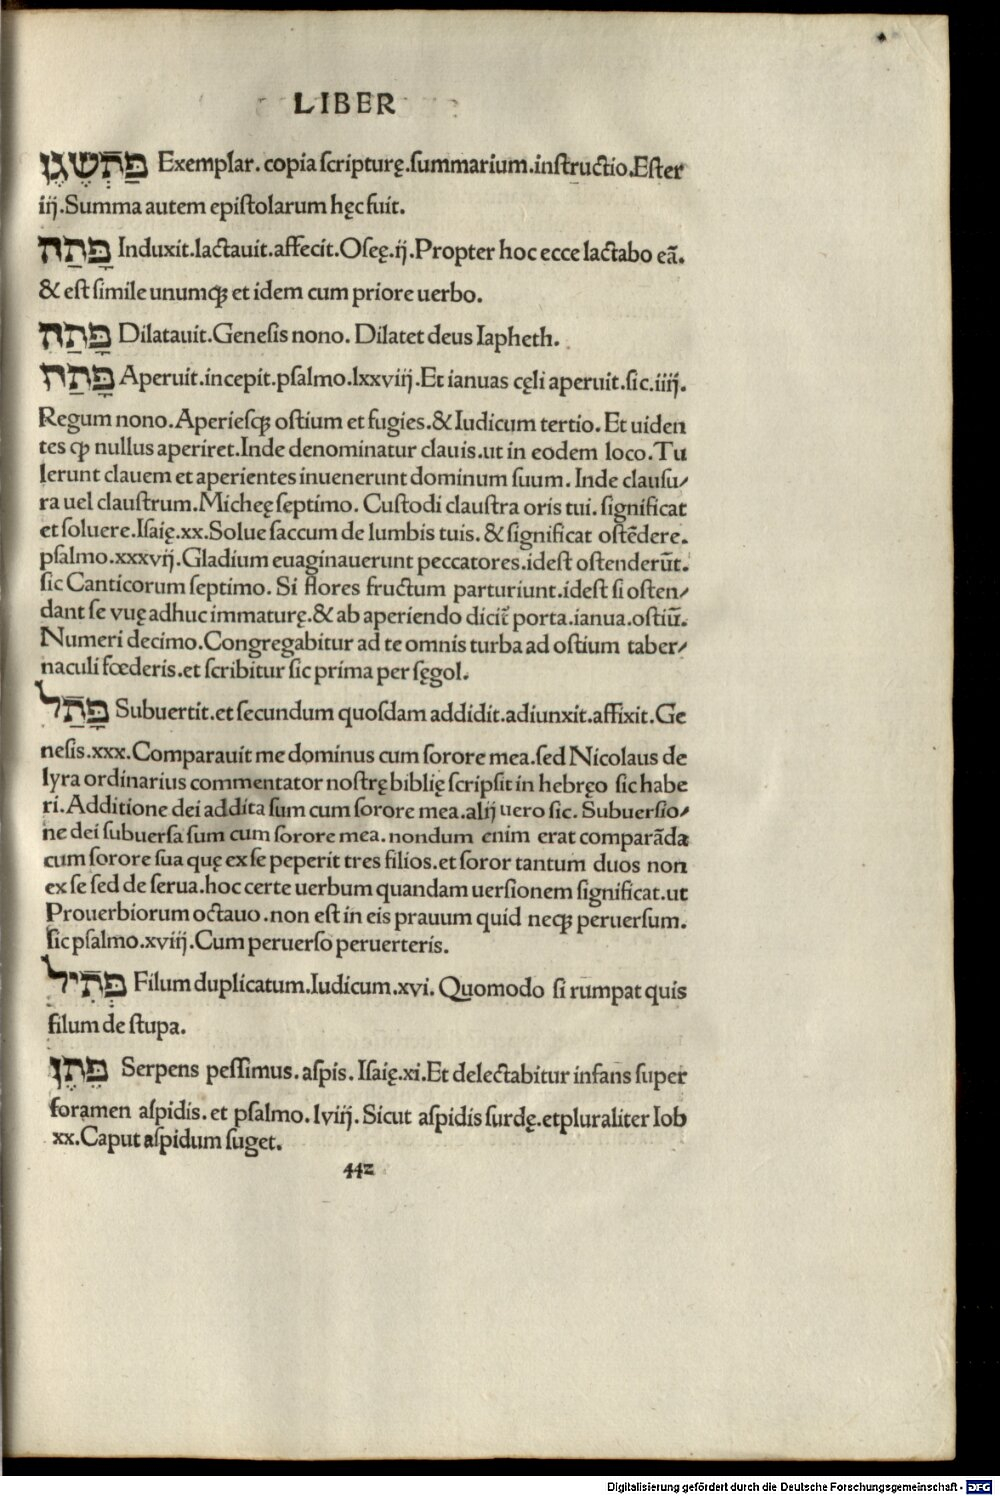 LIBER
פַּתְשֶׁגֶן Exemplar. copia ſcripturę.ſummarium.inſtructio.Eſter
iij.Summa autem epiſtolarum hęc fuit.
פָּתַה Induxit.lactauit.affecit.Oſeę.ij.Propter hoc ecce lactabo eã.
& eſt ſimile unumqꝫ et idem cum priore uerbo.
פָּתַה Dilatauit.Geneſis nono. Dilatet deus Iapheth.
פָּתַח Aperuit.incepit.pſalmo.lxxviij.Et ianuas cęli aperuit.ſic.iiij.
Regum nono.Aperieſqꝫ oſtium et fugies.& Iudicum tertio. Et uiden
tes ꝙ nullus aperiret.Inde denominatur clauis.ut in eodem loco.Tu
lerunt clauem et aperientes inuenerunt dominum ſuum. Inde clauſu/
ra uel clauſtrum.Micheę ſeptimo. Cuſtodi clauſtra oris tui. ſignificat
et ſoluere.Iſaię.xx.Solue ſaccum de lumbis tuis. & ſignificat oſtẽdere.
pſalmo.xxxvij.Gladium euaginauerunt peccatores.ideſt oſtenderũt.
ſic Canticorum ſeptimo. Si flores fructum parturiunt.ideſt ſi oſten/
dant ſe vuę adhuc immaturę.& ab aperiendo dicit᷑ porta.ianua.oſtiũ.
Numeri decimo.Congregabitur ad te omnis turba ad oſtium taber/
naculi fœderis.et ſcribitur ſic prima per ſęgol.
פָּתַל Subuertit.et ſecundum quoſdam addidit.adiunxit.affixit.Ge
neſis.xxx.Comparauit me dominus cum ſorore mea.ſed Nicolaus de
lyra ordinarius commentator noſtrę biblię ſcripſit in hebręo ſic habe
ri.Additione dei addita ſum cum ſorore mea.alij uero ſic. Subuerſio/
ne dei ſubuerſa ſum cum ſorore mea. nondum enim erat comparãda
cum ſorore ſua quę ex ſe peperit tres filios.et ſoror tantum duos non
ex ſe ſed de ſerua.hoc certe uerbum quandam uerſionem ſignificat.ut
Prouerbiorum octauo.non eſt in eis prauum quid neqꝫ peruerſum.
ſic pſalmo.xviij.Cum peruerſo peruerteris.
פְּתִיל Filum duplicatum.Iudicum.xvi. Quomodo ſi rumpat quis
filum de ſtupa.
פֶּתֶן Serpens peſſimus.aſpis.Iſaię.xi.Et delectabitur infans ſuper
foramen aſpidis.et pſalmo.lviij.Sicut aſpidis ſurdę.etpluraliter Iob
xx.Caput aſpidum ſuget.
442
Digitalisierung gefördert durch die Deutsche Forschungsgemeinschaft - DFG